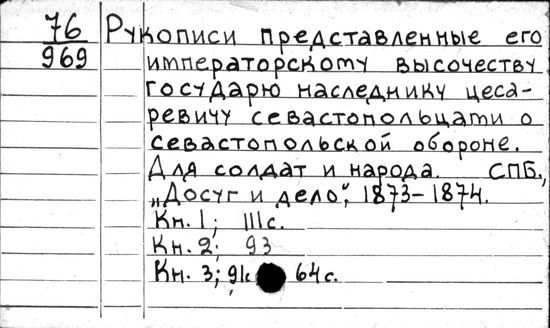 76 Рукописи представленные его
969 императорскому высочеству
государю наследнику цеса-
ревичу севастопольцами о
севастопольской обороне.
Для солдат и народа. СПБ.,
„Досуг и дело“, 1873-1874.
Кн. 1; 111с.
Кн. 2; 93
Кн. 3; 64с.